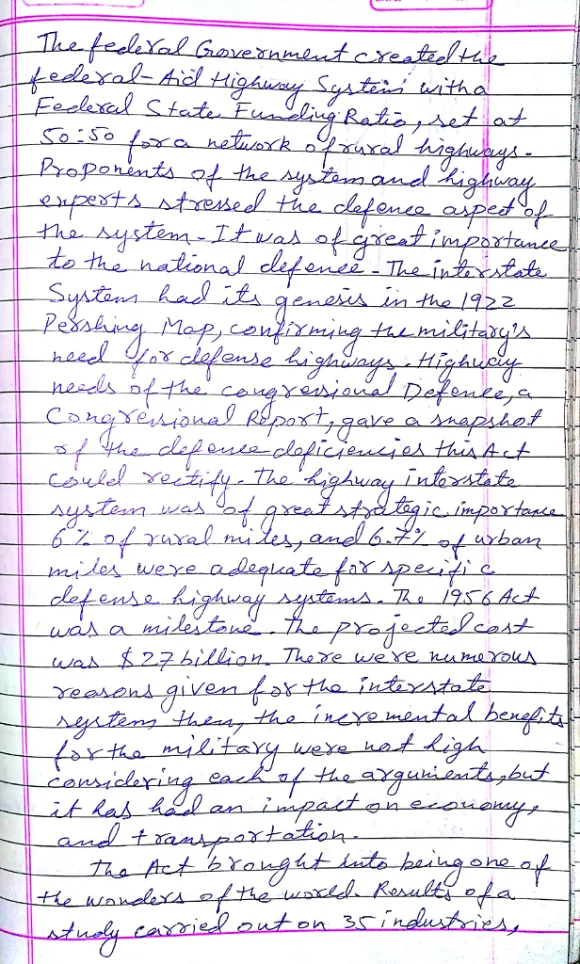 The federal Government created the
federal-Aid Highway System with a
Federal State Funding Ratio, set at
50:50 for a network of rural highways.
Proponents of the system and highway
experts stressed the defence aspect of
the system. It was of great importance
to the national defence. The interstate
System had its genesis in the 1922
Pershing Map, confirming the military's
need for defense highways. Highway
needs of the congressional Defence, a
Congressional Report, gave a snapshot
of the defence deficiencies this Act
could rectify. The highway interstate
system was of great strategic importance
6% of rural miles, and 6.7% of urban
miles were adequate for specific
defense highway systems. The 1956 Act
was a milestone. The projected cost
was $27 billion. There were numerous
reasons given for the interstate
system then, the incremental benefits
for the military were not high
considering each of the arguments, but
it has had an impact on economy,
and transportation.
The Act brought into being one of
the wonders of the world. Results of a
study carried out on 35 industries,